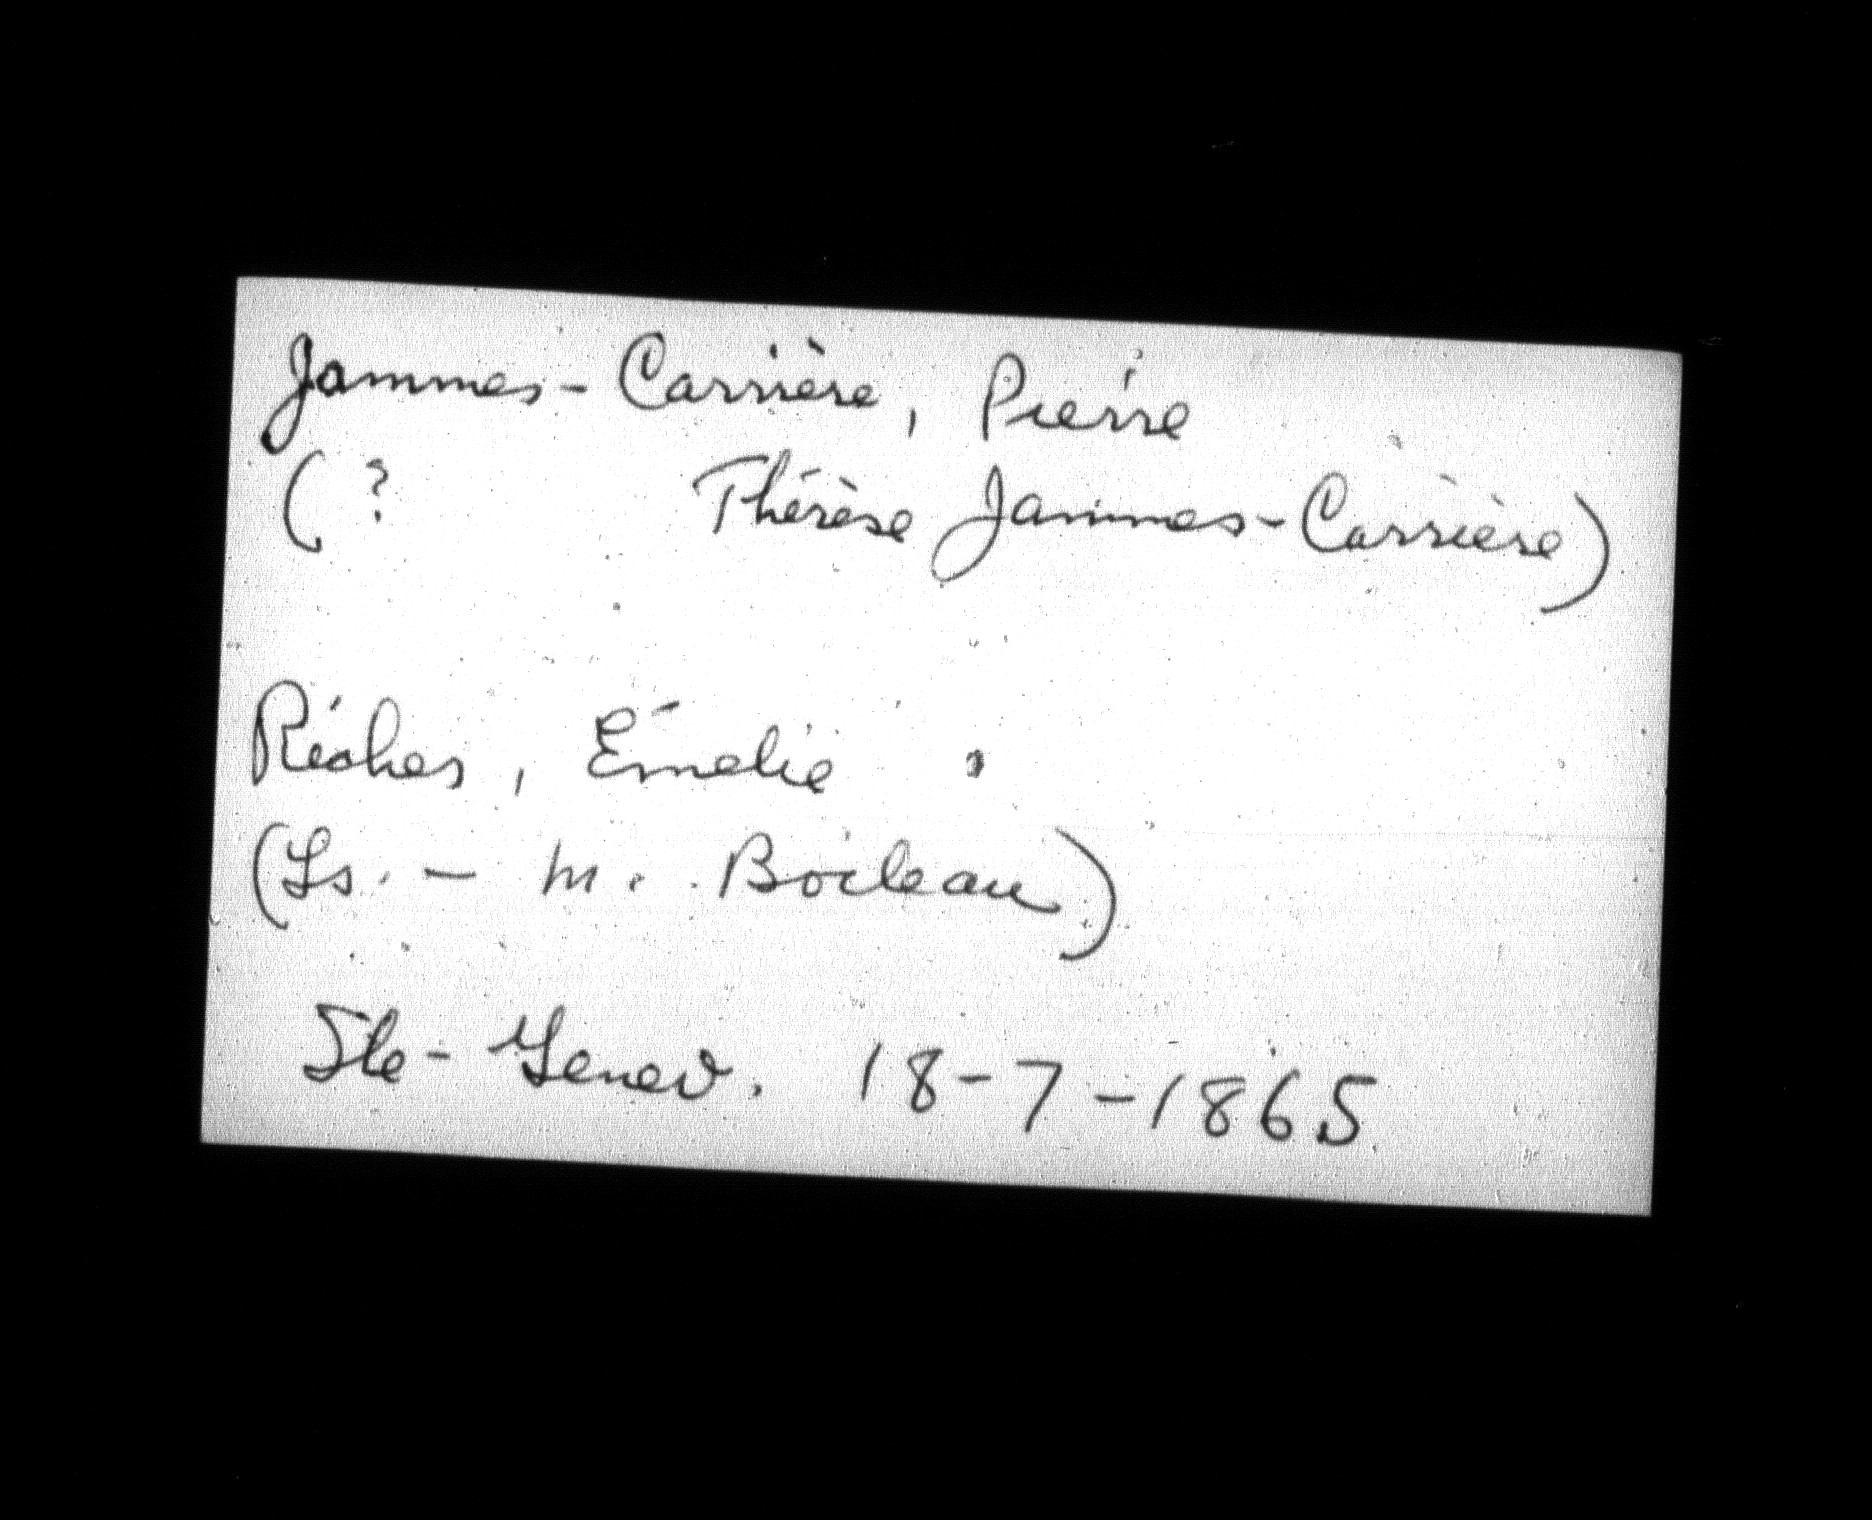 Jammes-Carrière, Pierre
( ? Thérèse Jammes-Carrière)
Réches, Émelie
(Ls. - M. Boileau)
Ste-Genev. 18-7-1865